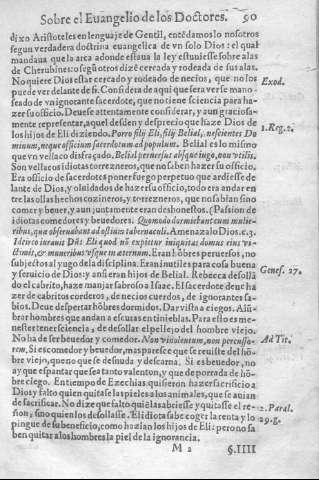 Sobre el Euangelio de los Doctores. 90
dixo Aristoteles en lenguaje de Gentil, entēdamos lo nosotros
segun verdadera doctrina euangelica de vn solo Dios: el qual
mandaua que la arca adonde estaua la ley estuuiesse sobre alas
de Cherubines: o segū otros dizē cercada y rodeada de sus alas.
No quiere Dios estar cercado y rodeado de necios, que no los
puede ver delante de si. Considera de aqui que sera verse mano-
seado de vn ignorante sacerdote, que no tiene sciencia para ha-
zer su officio. Deuese attentamente considerar, y aun graciosa-
mente representar, aquel desden y desprecio que haze Dios de
los hijos de Eli diziendo. Porro filij Eli, filij Belial, nescientes Do
minum, neque officium sacerdotum ad populum. Belial es lo mismo
que vn vellaco disfraçado. Belial peruersus absque iugo, non vtilis.
Son vellacos idiotas torrezneros, que no saben hazer su officio.
Era officio de sacerdotes poner fuego perpetuo que ardiesse de
lante de Dios, y oluidados de hazer su officio, todo era andar en
tre las ollas hechos cozineros, y torreznros, que no sabian sino
comer y beuer, y aun juntamente eran deshonestos. (Passion de
idiotas comedores y beuedores. Quomodo dormiebant cum mulie-
ribus, quæ obseruabant ad ostium tabernaculi. Amenazalo Dios. c. 3.
Idcirco iuraui Dñs Eli quod nō expietur iniquitas domus eius vi-
ctimis, & muneribus vsque in æternum. Eran hōbres peruersos, no
subjectos al yugo de la disciplina. Eran inutiles para cosa buena
y seruicio de Dios: y ansi eran hijos de Belial. Rebecca de solla
do el cabrito, haze manjar sabroso a Isaac. El sacerdote deue ha
zer de cabritos corderos, de necios cuerdos, de ignorantes sa-
bios. Deue despertar hōbres dormidos. Dar vista a ciegos. Alū-
brar hombres que andan a escuras en tinieblas. Para esto es me-
nester tener sciencia, de desollar el pellejo del hombre viejo.
No ha de ser beuedor y comedor. Non vinolentum, non percusso-
rem. Si es comedor y beuedor, mas paresce que se reuiste del hō-
bre viejo, que no que se desnuda y descarna. Si es beuedor, no
ay que espantar que sea tanto valenton, y que de porrada de hō-
bre ciego. En tiempo de Ezechias quisieron hazer sacrificio a
Dios y falto quien quitase las pieles a los animales, que se auian
de sacrificar. No dize que falto quiē las abriesse y quitasse el re-
ñon, sino quien los desollasse. El idiota sabe coger la renta y lo
pingue de su beneficio, como hazian los hijos de Eli: pero no sa
ben quitar a los hombres la piel de la ignorancia.
M 2 §. IIII
Exod.
1. Reg. 2.
Genes. 27.
Ad Tit.
2. Paral.
29. g.